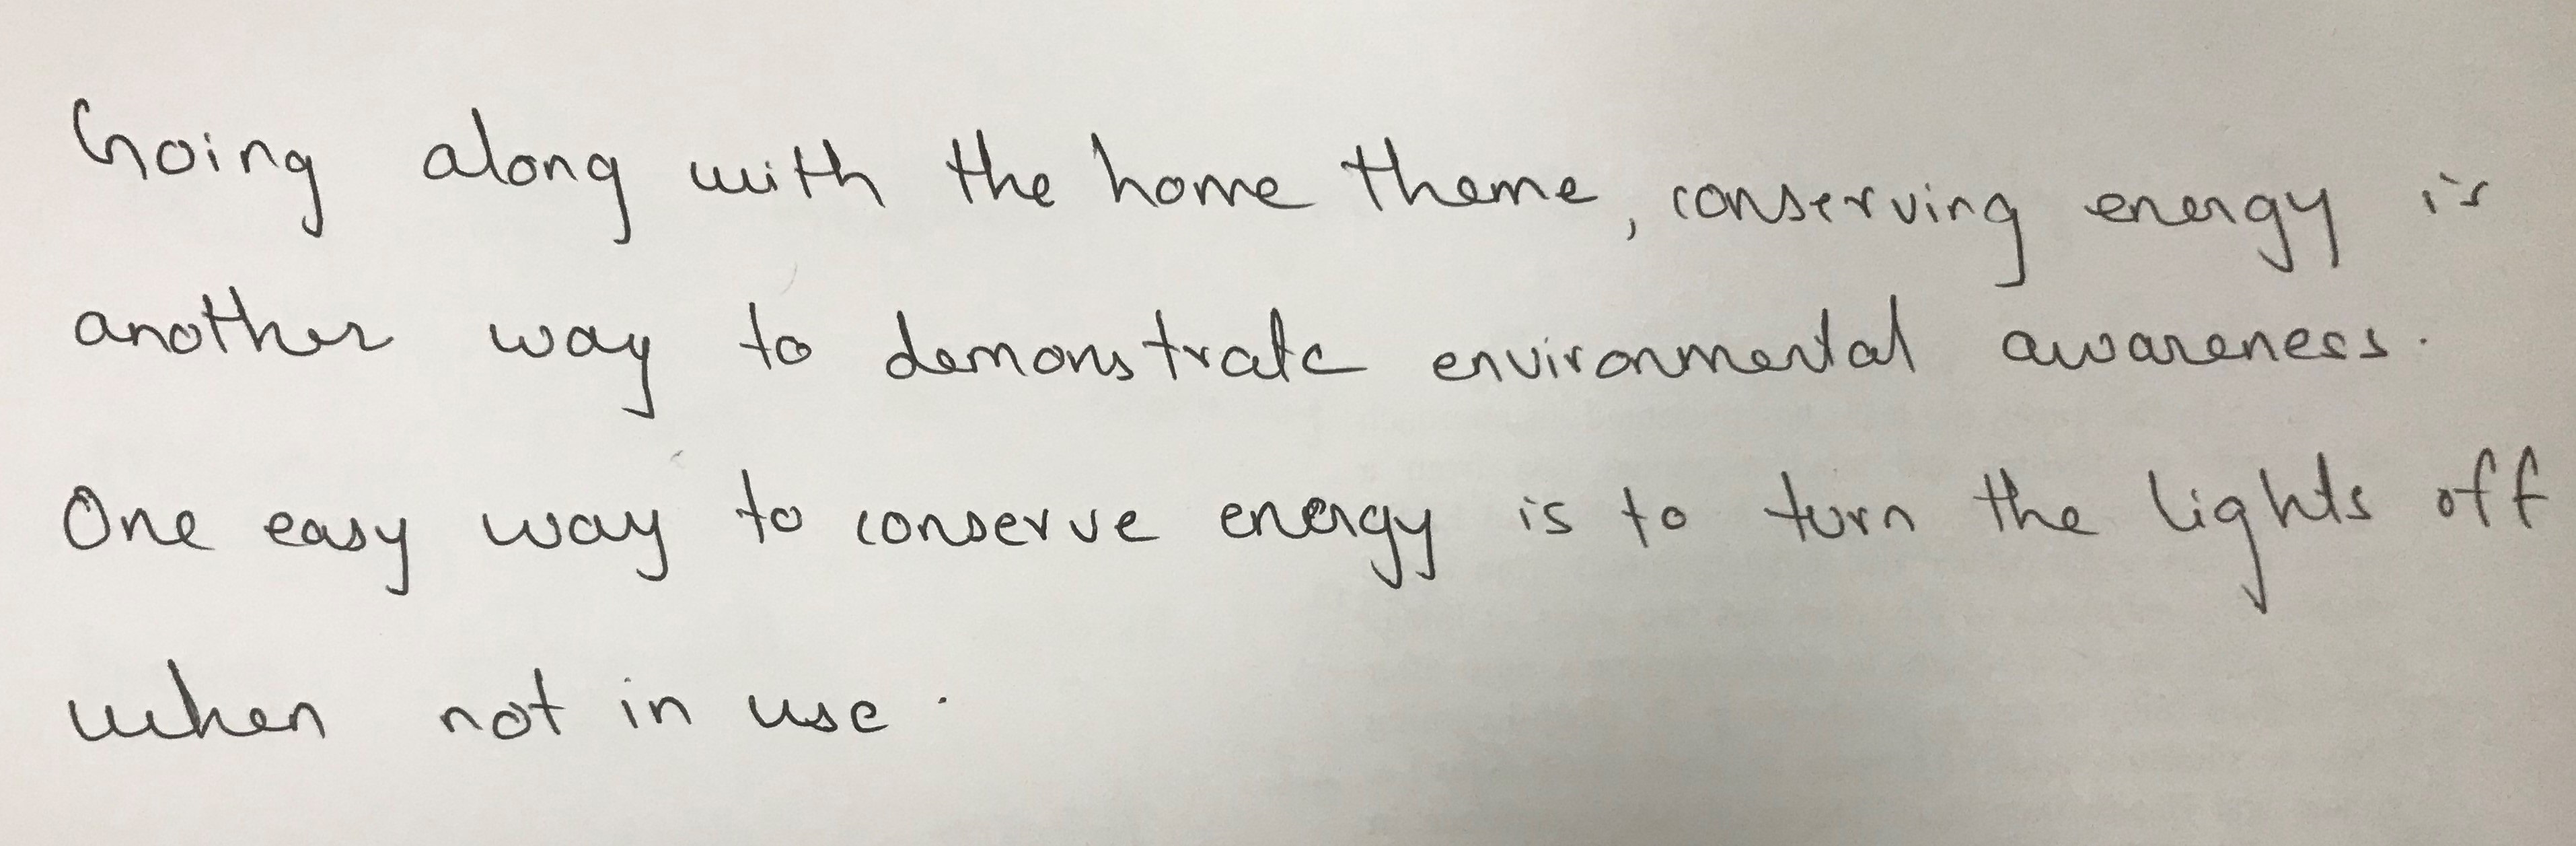 Going along with the home theme, conserving energy is
another way to demonstrate environmental awareness.
One easy way to conserve energy is to turn the lights off
when not in use.